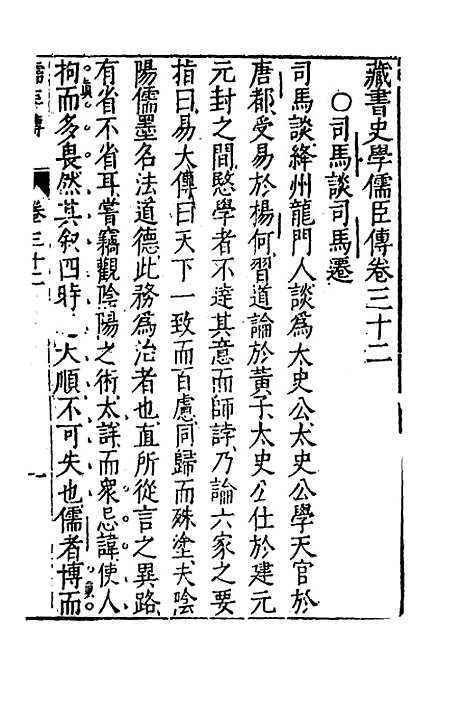 藏書史學儒臣傳卷三十二
○司馬談司馬遷
司馬談絳州龍門人談爲太史公太史公學天官於
唐都受易於楊何習道論於黃子太史公仕於建元
元封之間愍學者不達其意而師誖乃論六家之要
指曰易大傳曰天下一致而百慮同歸而殊塗夫陰
陽儒墨名法道德此務爲治者也直所從言之異路
有省不省耳嘗竊觀陰陽之術太詳而衆忌諱使人
拘而多畏然其叙四時大順不可失也儒者博而
儒臣傳
卷三十二
一